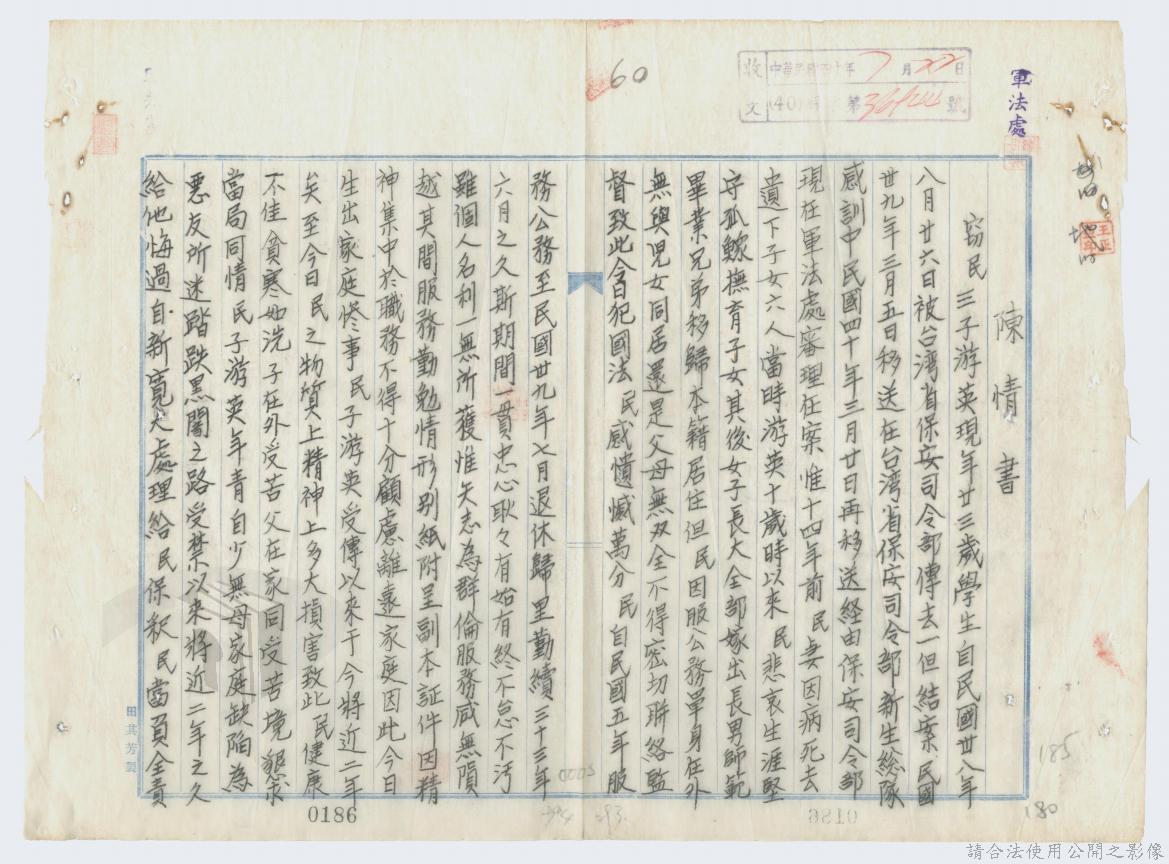 軍法處
收文
中華民國四十年7月22日
(40) 第 號
60
陳情書
竊民 三子游英現年廿三歲學生自民國卅八年
八月廿六日被台湾省保安司令部傳去一但結案民國
卅九年三月五日移送在台湾省保安司令部新生総隊
感訓中民國四十年三月廿日再移送経由保安司令部
現在軍法處審理在案惟十四年前 民妻因病死去
遺下子女六人當時游英十歲時以來 民悲哀生涯堅
守孤鰥撫育子女其後女子長大全部嫁出長男師範
畢業兄弟移歸本籍居住但 民因服公務單身在外
無與児女同居還是父母無双全不得密切聯絡監
督致此今日犯國法 民感憒憾萬分 民自民國五年服
務公務至民國卅九年七月退休歸里勤續三十三年
六月之久斯期間一貫忠心耿々有始有終不怠不污
雖個人名利一無所獲惟矢志為群倫服務咸無隕
越其間服務勤勉情形别紙附呈副本証件因精
神集中於職務不得十分顧慮離遠家庭因此今日
生出家庭惨事民子游英受傳以來于今將近二年
矣至今日民之物質上精神上多大損害致此民健康
不佳貧寒如洗子在外受苦父在家同受苦境懇求
當局同情民子游英年青自少無母家庭缺陷為
悪友所迷踏跌黒闇之路受禁以來將近二年之久
給他悔過自新寬大處理給民保釈民當負全責
田其芳製
0186
185
180
請合法使用公開之影像